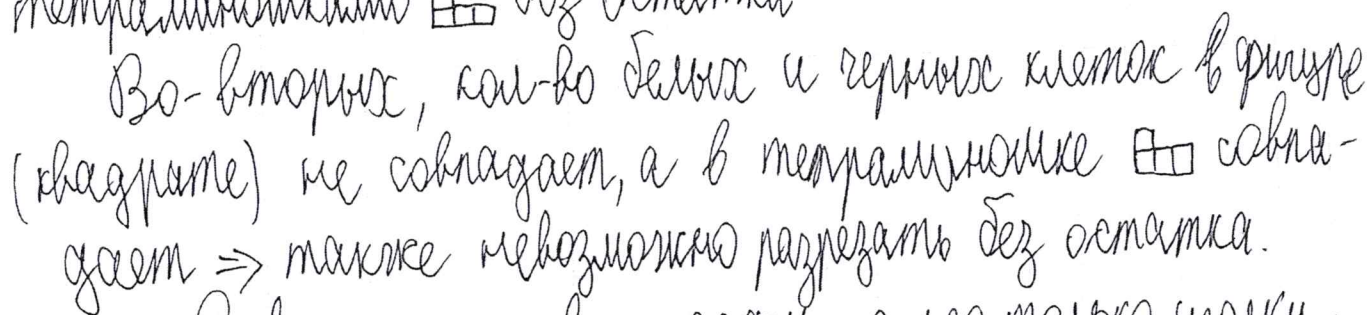 тетраминошками без остатка
Во-вторых, кол-во белых и черных клеток в фигуре
(квадрате) не совпадает, а в тетраминошке совпа-
дает => также невозможно разрезать без остатка.